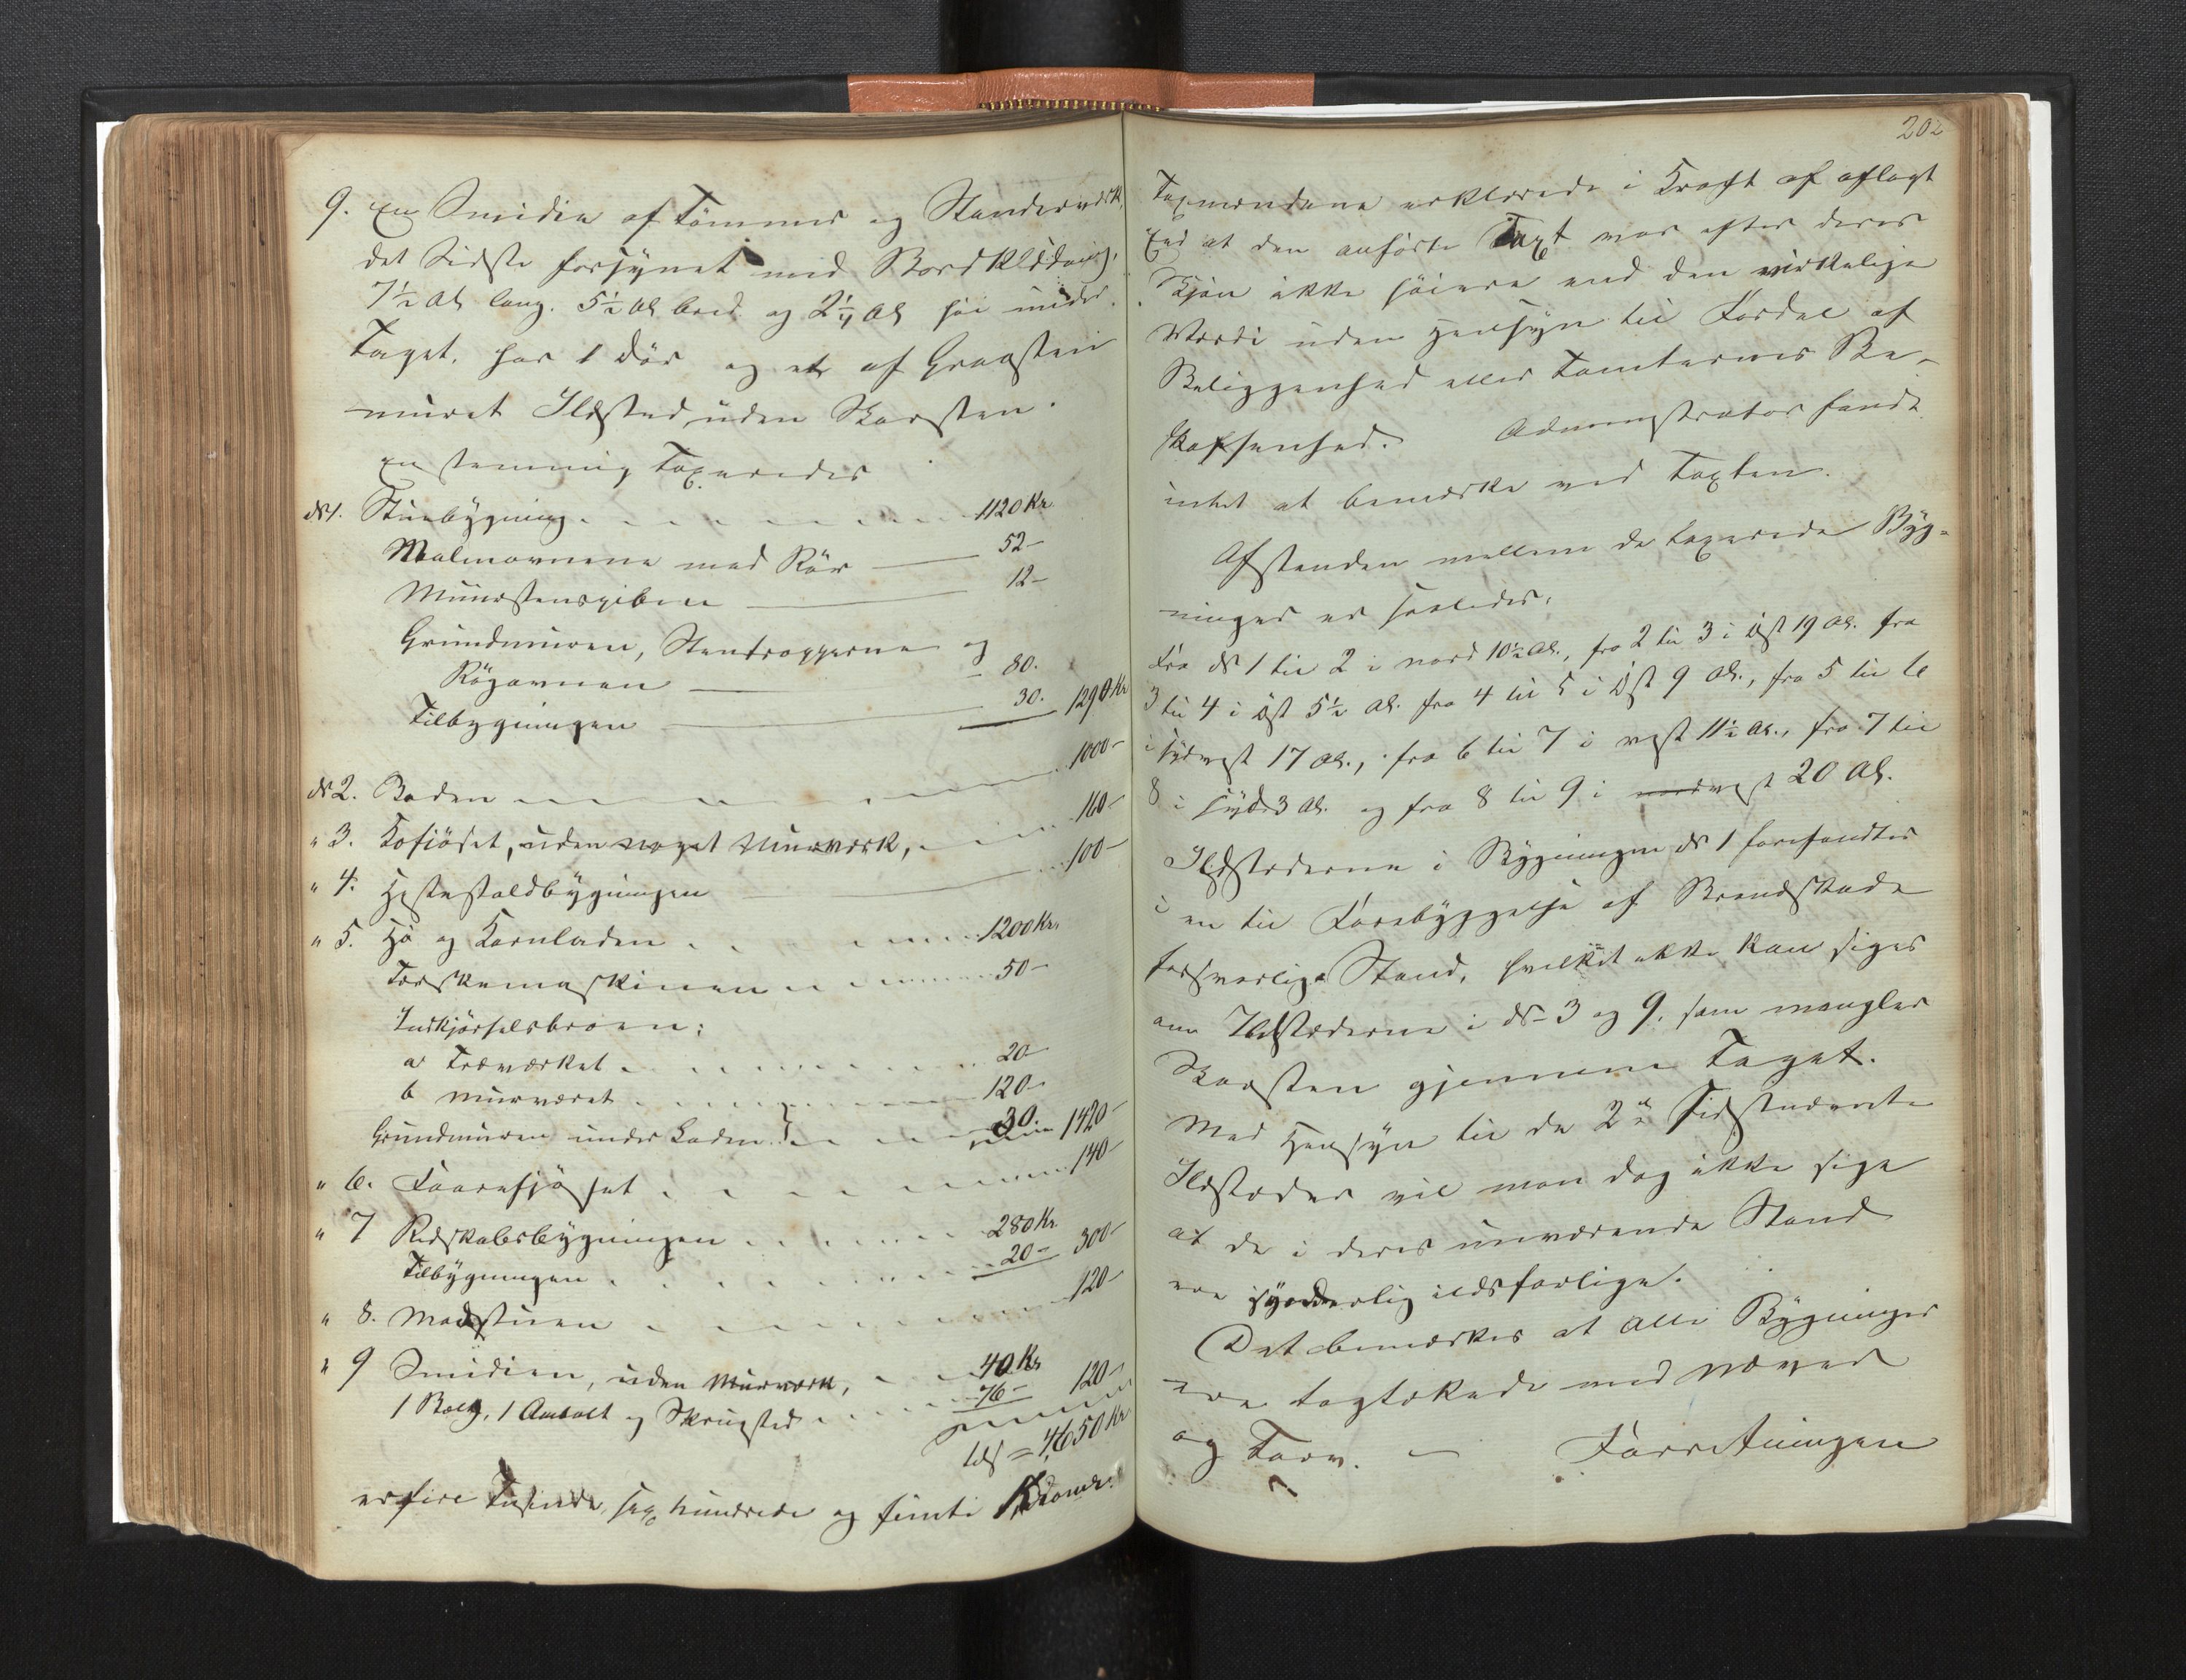 9. En Smidie af Tømmer og Standerværk,
det Sidste forsynet med Bordklædning,
7½ Al lang. 5½ Al bred og 2¼ Al høi under
Taget. har 1 Dör og et af Graasten
muret Ildsted, uden Skorsten.
Enstemmig Taxeredes
№ 1. Stuebygning 1120 Kr
Malmovnene med Rör 52 -
Muurstenspiben 12 -
Grundmuren, Stentrapperne og
Røgovnen 80.
Tilbygningen 30. 1290 Kr
№ 2. Boden 1000 -
" 3. Kofjöset, uden noget Murværk, 160 -
" 4. Hestestaldbygningen 100 -
" 5. Hö og Kornladen 1200 Kr.
Tærskemaskinen 50 -
Indkjørselsbroen:
a Træværket 20 -
b murværet 120 -
Grundmuren under Laden } 30. 1420 -
" 6. Faarefjöset 140 -
" 7 Redskabsbygningen 280 Kr.
Tilbygningen 20 - 300 -
" 8. Madstuen 120 -
" 9 Smidien, uden Murværk, 40 Kr
1 Bælg, 1 Ambolt og Skruested 76 - 120 -
Tils = 4,650 Kr
er fire Tusinde, sex hundrede og femti Kroner.
202
Taxmændene erklærede i Kraft af aflagt
Eed at den anførte Taxt var efter deres
Skjøn ikke høiere end den virkelige
Værdi uden Hensyn til Fordel af
Beliggenhed eller Tomternes Be-
skaffenhed. Administrator fandt
intet at bemærke ved Taxten.
Afstanden mellem de taxerede Byg-
ninger er saaledes:
Fra № 1 til 2 i nord 10½ Al., fra 2 til 3 i öst 19 Al. fra
3 til 4 i öst 5½ Al. fra 4 til 5 i öst 9 Al., fra 5 til 6
i sydvest 17 Al., fra 6 til 7 i vest 11½ Al., fra 7 til
8 i syd 3 Al. og fra 8 til 9 i nordvest 20 Al.
Ildstederne i Bygningen № 1 forefandtes
i en til Forebyggelse af Brandskade
forsvarlig Stand, hvilket ikke kan siges
om Ildstederne i № 3 og 9. som mangler
Skorsten gjennem Taget.
Med Hensyn til de 2de sidstnævnte
Ildsteder vil man dog ikke sige
at de i deres nuværende Stand
ere synderlig ildsfarlige.
Det bemærkes at alle Bygninger
ere tagtækede med næver
og Torv. — Forretningen